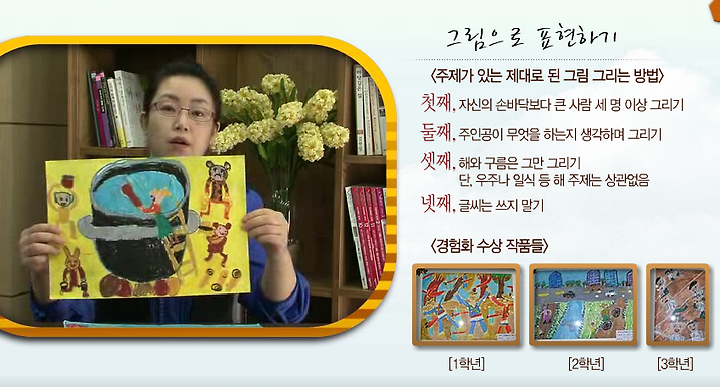 그림으로 표현하기
〈주제가 있는 제대로 된 그림 그리는 방법〉
첫째, 자신의 손바닥보다 큰 사람 세 명 이상 그리기
둘째, 주인공이 무엇을 하는지 생각하며 그리기
셋째, 해와 구름은 그만 그리기
단, 우주나 일식 등 해 주제는 상관없음
넷째, 글씨는 쓰지 말기
〈경험화 수상 작품들〉
[1학년] [2학년] [3학년]